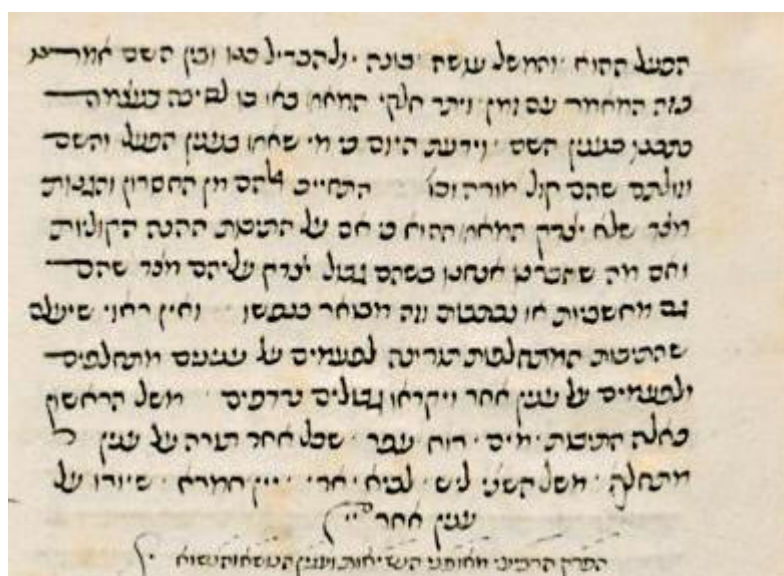 הפעל ההוא · והמשל עושה · בונה · ולהבדיל בינו ובין השם אמר
בזה המאמר עם זמן · ויתר חלקי המאמר באו בו לסיבה בעצמה
כתבנו בענין השם · וידעת היום כי מי שאמר בענין הפעל והשם
זולתם שהם קול מורה וכו' התחייב להם מן החסרון והגנות
מצד שלא יצדק המאמר ההוא כי אם על התיבות ההנה הקוליות
ואם מה שחברנו אנחנו בשהם גבול יצדק עליהם מצד שהם
גם מחשביות או נכתבות וזה מבואר בנפשו ואין ראוי שיעלם
שהתיבות המתחלפות תורינה לפעמים על ענינים מתחלפים
ולפעמים על ענין אחד ויקראו גבולים נרדפים · משל הראשון
כאלה התיבות · מים · רוח · עפר · שכל אחד תורה על ענין
מתחלף · משל השני ליש · לביא · ארי · יין חמרא · שיורו על
ענין אחד
הפרק הרביעי מאותני הנשיאות וענין הנושא והנשוא